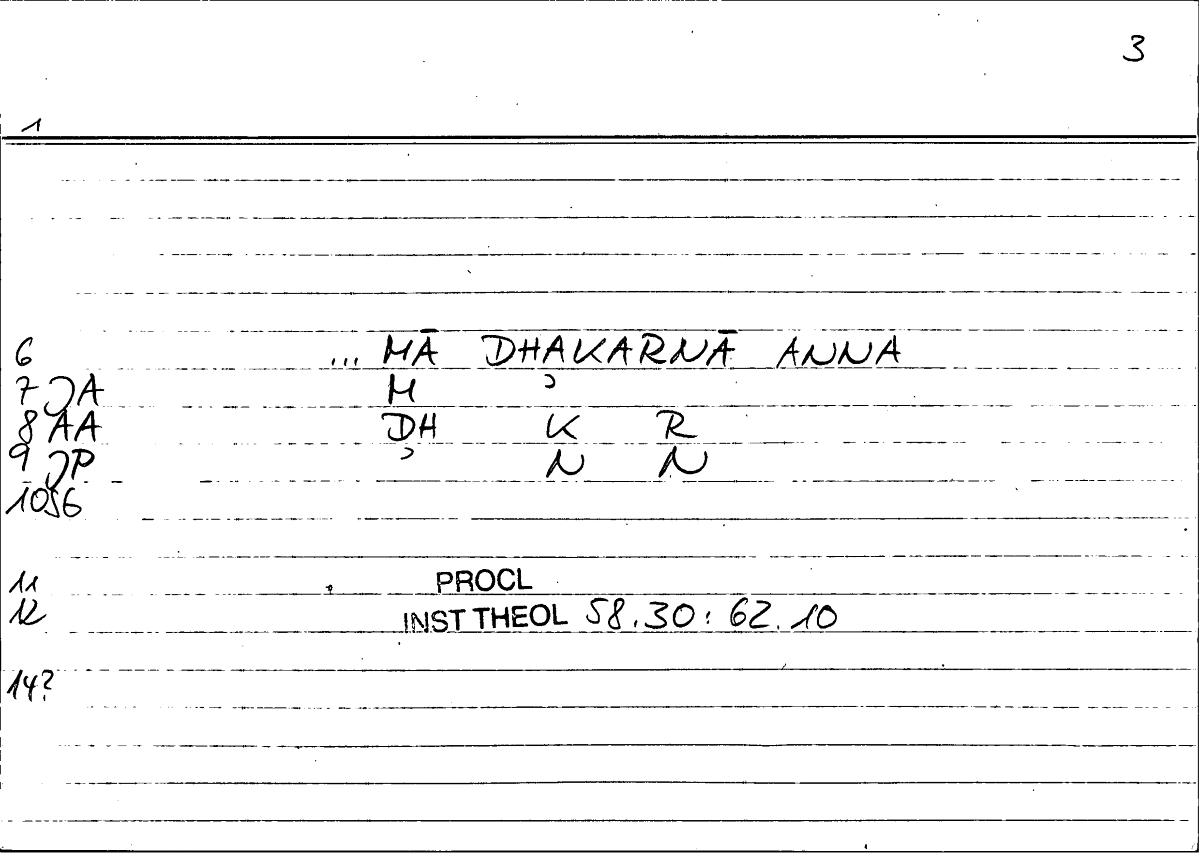 3
1
6 ... MĀ DHAKARNĀ ANNA
7 JA M ʾ
8 AA DH K R
9 JP ʾ N N
10 SG
11 PROCL
12 INST THEOL 58.30 : 62.10
14?